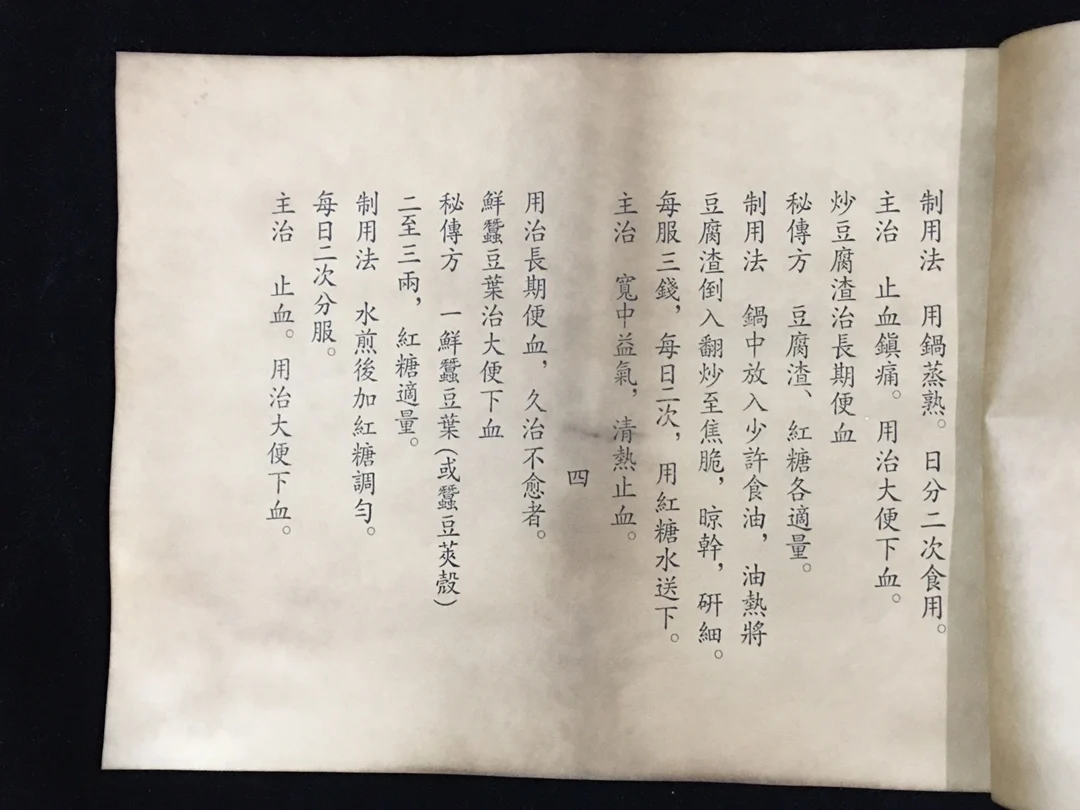 制用法　用鍋蒸熟。日分二次食用。
主治　止血鎮痛。用治大便下血。
炒豆腐渣治長期便血
秘傳方　豆腐渣、紅糖各適量。
制用法　鍋中放入少許食油，油熱將
豆腐渣倒入翻炒至焦脆，晾幹，研細。
每服三錢，每日二次，用紅糖水送下。
主治　寬中益氣，清熱止血。
四
用治長期便血，久治不愈者。
鮮蠶豆葉治大便下血
秘傳方　一鮮蠶豆葉（或蠶豆莢殼）
二至三兩，紅糖適量。
制用法　水煎後加紅糖調勻。
每日二次分服。
主治　止血。用治大便下血。